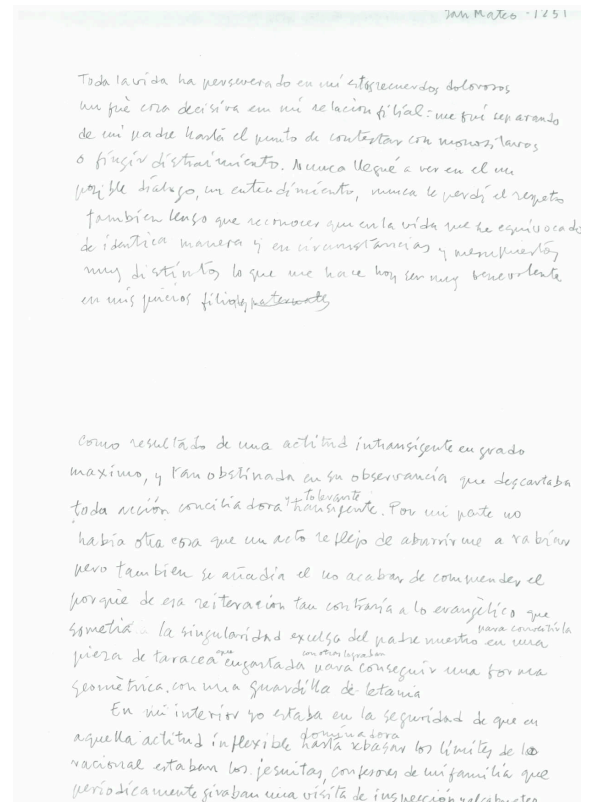 San Mateo - 1251
Toda la vida ha perseverado en mí estos recuerdos dolorosos
un fué cosa decisiva em mi relacion filial: me fué separando
de mi padre hasta el punto de contestar con monosilavos
o fingir distraimiento. Nunca llegué a ver en el un
posible diálogo, un entendimiento, nunca le perdí el respeto
tambien tengo que reconocer que en la vida me he equivocado
de identica manera y en circunstancias y
muy distintos lo que me hace hoy ser muy benevolente
en mis juicios filiales paternales
como resultado de una actitud intransigente en grado
maximo, y tan obstinada en su observancia que descartaba
toda acción conciliadora y tolerante transigente. Por mi parte no
había otra cosa que un acto reflejo de aburrirme a rabiar
pero tambien se añadia el no acabar de comprender el
porqué de esa reiteracion tan contraria a lo evangélico que
sometia la singularidad excelsa del padre nuestro para convertirla en una
pieza de taracea que engastada con otras lograban para conseguir una forma
geométrica. con una guardilla de letania
En mi interior yo estaba en la seguridad de que en
aquella actitud inflexible dominadora hasta rebasar los límites de lo
racional estaban los jesuitas, confesores de mi familia que
periódicamente giraban una visita de inspección